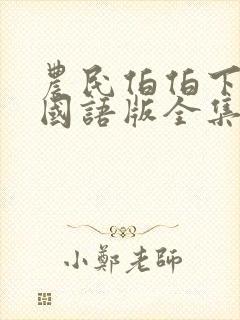 農民伯伯下
國語版全集
小鄭老師